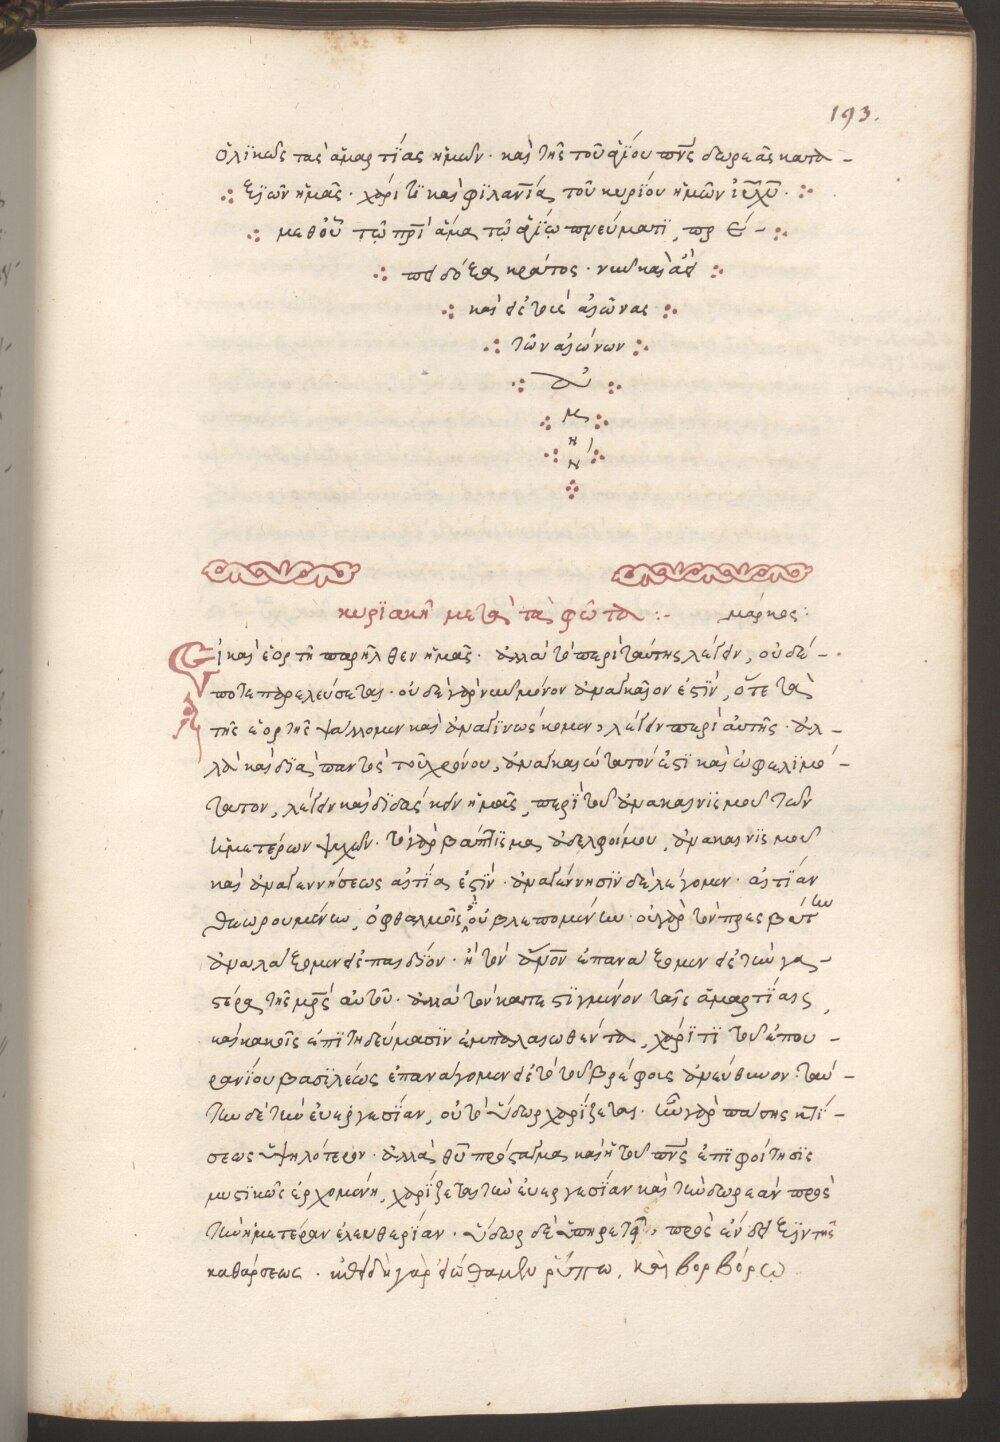 193.
ὁλϊκῶς τας ἁμαρτίας ἡμῶν · καὶ τῆς τοῦ ἁγίου πνς δωρεᾶς κατα-
ξιῶν ἡμᾶς · χάριτϊ καὶ φϊλανίᾳ τοῦ κυρίου ἡμῶν ἰῦ χῦ ·
μεθ οὗ τῷ πρὶ ἅμα τῷ ἁγίῳ πνεύματϊ, πρέ-
πει δόξα κράτος · νῦν καὶ ἀεὶ
καὶ εἰς τοὺς αἰῶνας
τῶν αἰώνων
ἀ
μ
ή
ν
κυρϊακῇ μετὰ τὰ φῶτα :- μάρκος :
Εἰ καὶ ἑορτὴ παρῆλθεν ἡμᾶς · ἀλλὰ τὸ περὶ ταύτης λέγειν, οὐδέ-
ποτε παρελεύσεται · οὐδὲ γὰρ νῦν μόνον ἀναγκαῖον ἐστϊν, ὅτε τὰ
τῆς ἑορτῆς ψάλλομεν καὶ ἀναγϊνώσκομεν, λέγειν περὶ αὐτῆς · ἀλ-
λὰ καὶ δϊὰ παντὸς τοῦ χρόνου, ἀναγκαιώτατόν ἐστϊ καὶ ὠφελϊμό-
τατον, λέγειν καὶ δϊδάσκειν ἡμᾶς, περὶ τοῦ ἀνακαινϊσμοῦ τῶν
ἡμετέρων ψυχῶν · τὸ γὰρ βάπτϊσμα ἀδελφοί μου, ἀνακαινϊσμοῦ
καὶ ἀναγεννήσεως αἰτϊα ἐστϊν · ἀναγέννησϊν δὲ λέγομεν · αἰτϊαν
θεωρουμένην, ὀφθαλμοῖς οὐ βλεπομένην · οὐ γὰρ τὸν πρεσβύτην
ἀναλλάξομεν εἰς παιδϊον · ἢ τὸν ἄνον ἐπανάξομεν εἰς τὴν γα-
στέρα τῆς μρς αὐτοῦ · ἀλλὰ τὸν κατεστϊγμένον ταῖς ἁμαρτϊαις,
καὶ κακοῖς ἐπϊτηδεύμασϊν ἐμπαλαιωθέντα, χάρϊτϊ τοῦ ἐπου-
ρανίου βασϊλέως ἐπανάγομεν εἰς τὸ τοῦ βρέφους ἀνεύθυνον · ταύ-
την δὲ τὴν εὐεργεσϊαν, οὐ τὸ ὕδωρ χαρϊζεται · ἦν γὰρ πάσης κτϊ-
σεως ὑψηλότερον · ἀλλὰ θῦ πρόσταγμα καὶ ἡ τοῦ πνς ἐπϊφοίτησϊς
μυστϊκῶς ἐρχομένη, χαρϊζεται τὴν εὐεργεσϊαν καὶ τὴν δωρεὰν πρὸς
τὴν ἡμετέραν ἐλευθερϊαν · ὕδωρ δὲ ὑπηρετεῖ, πρὸς ἔνδειξϊν τῆς
καθάρσεως · ἐπειδὴ γὰρ εἰώθαμεν ῥύπῳ, καὶ βορβόρῳ